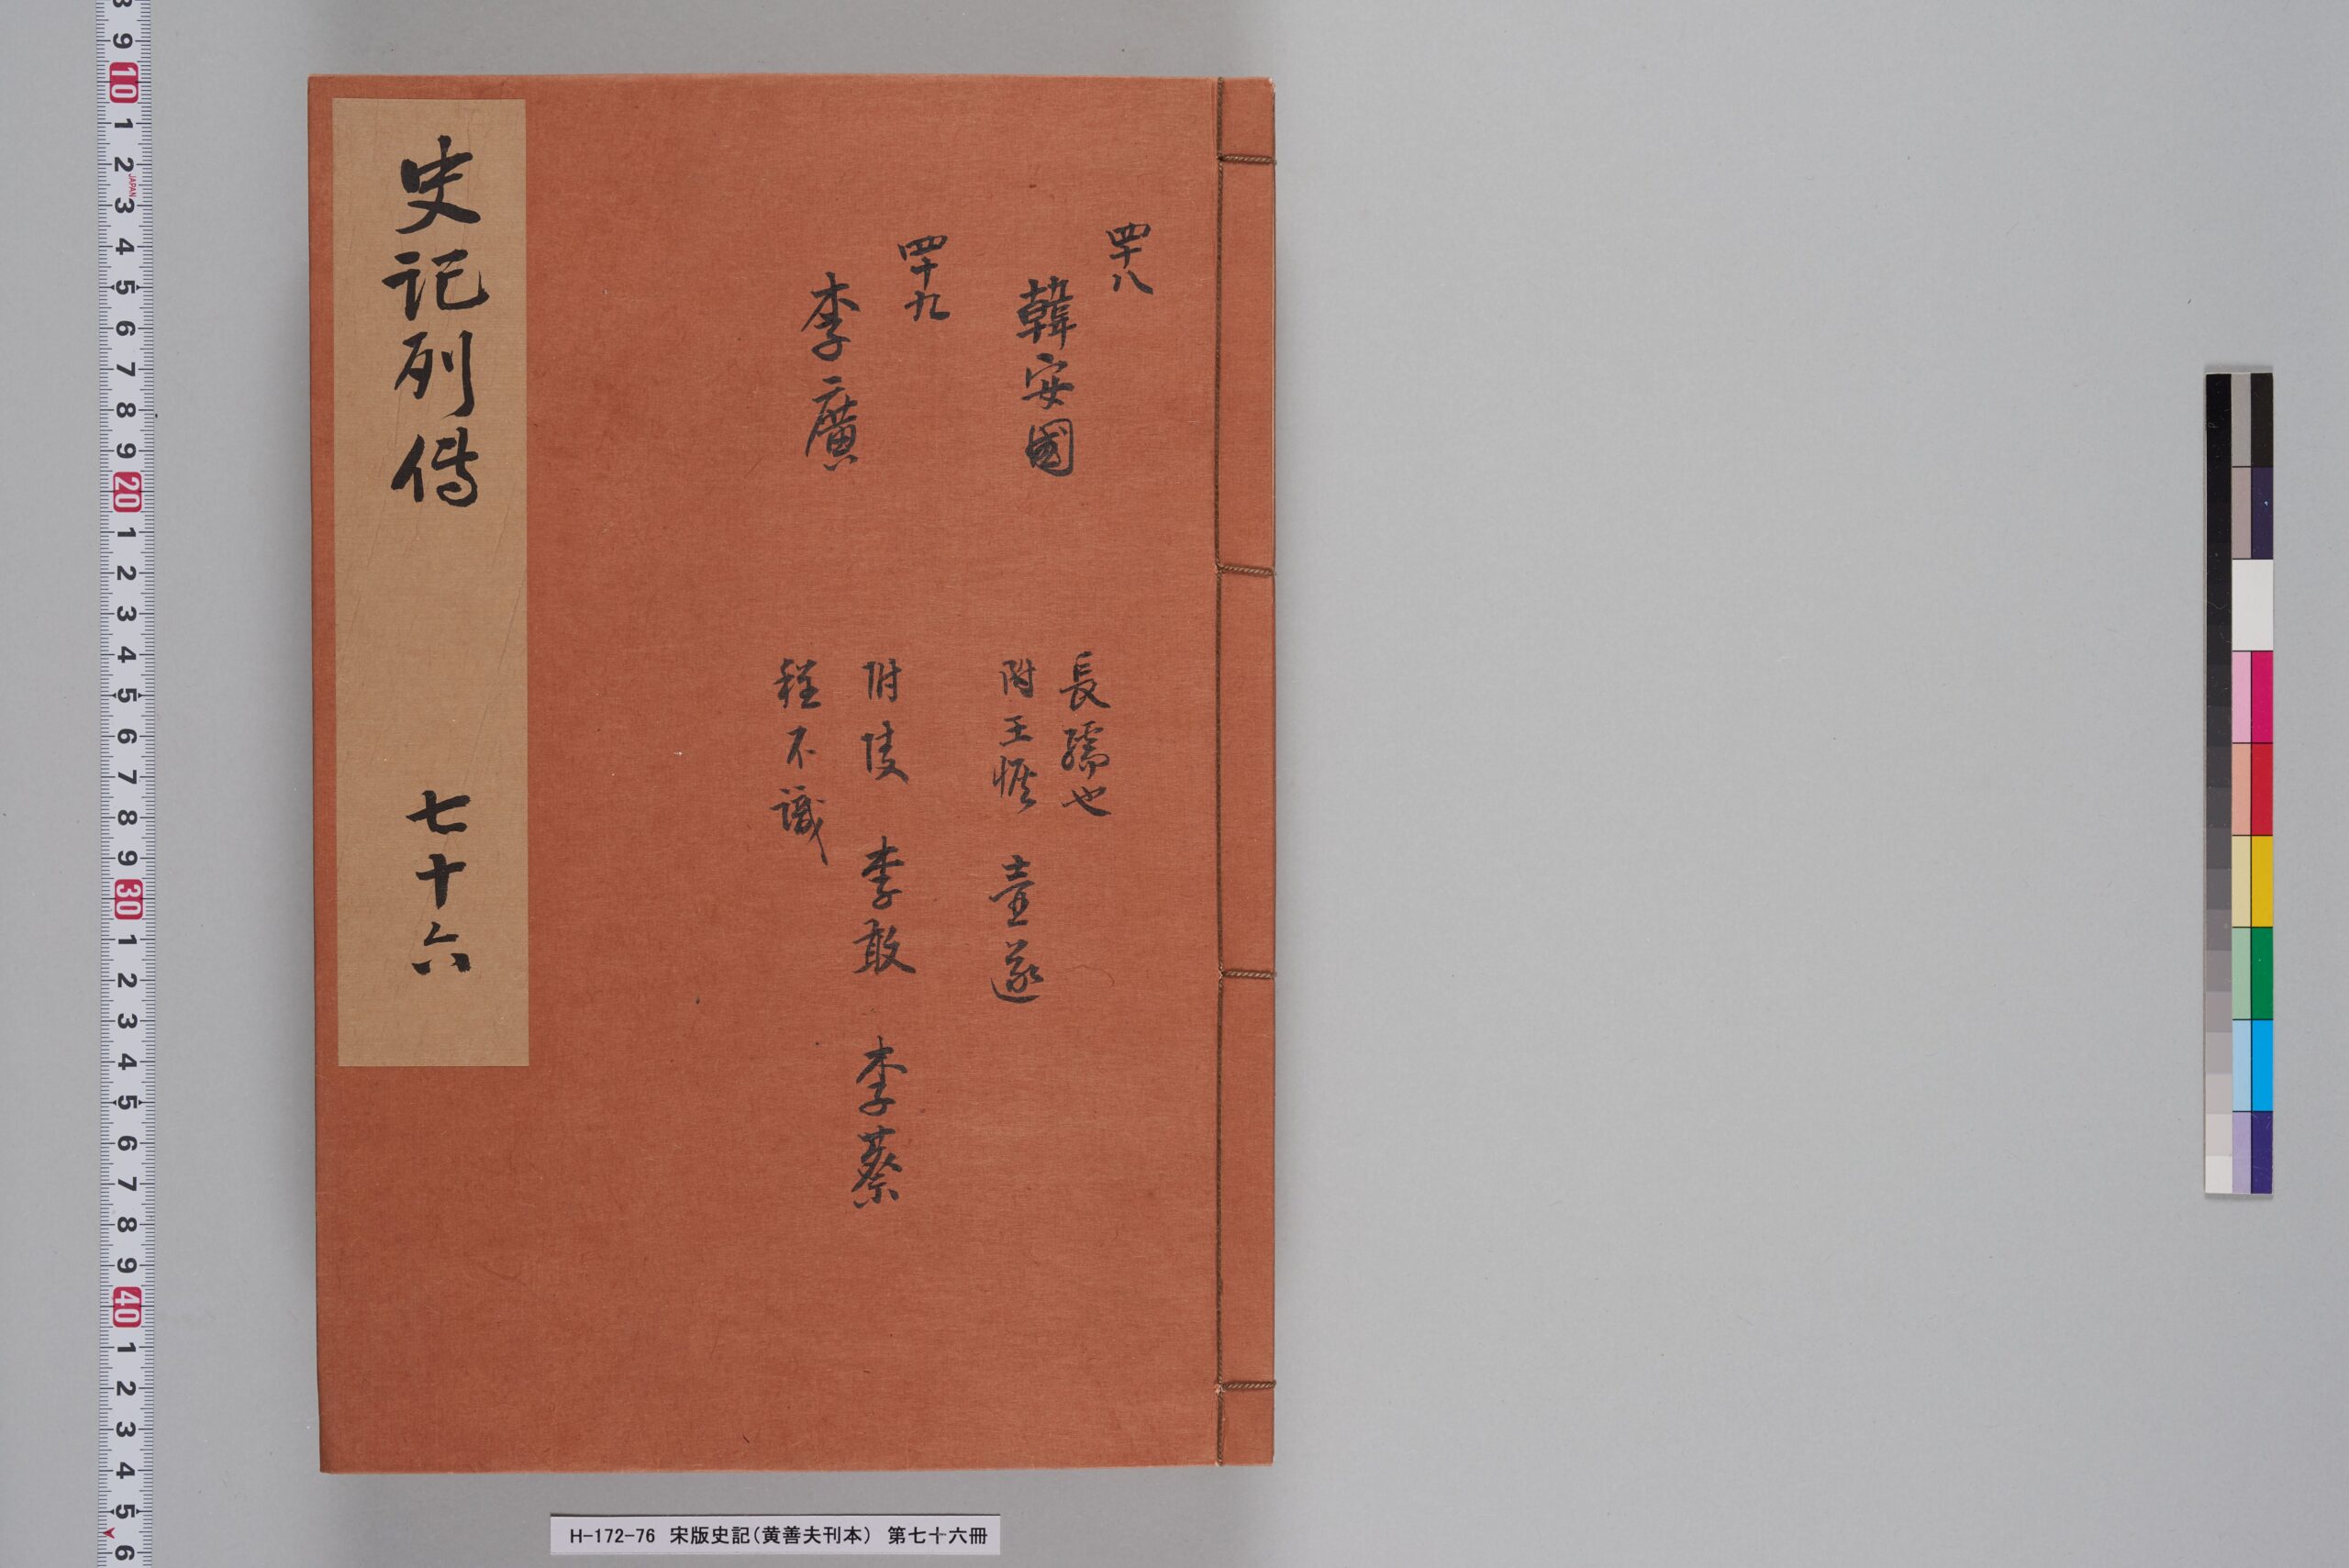 四十八
韓安國
長孺也
附王恢 壷遂
四十九
李廣
附陵 李敢 李蔡
程不識
史記列傳 七十六
H-172-76 宋版史記(黄善夫刊本) 第七十六冊
8 9 10 1 2 3 4 5 6 7 8 9 20 1 2 3 4 5 6 7 8 9 30 1 2 3 4 5 6 7 8 9 40 1 2 3 4 5 6
JAPAN